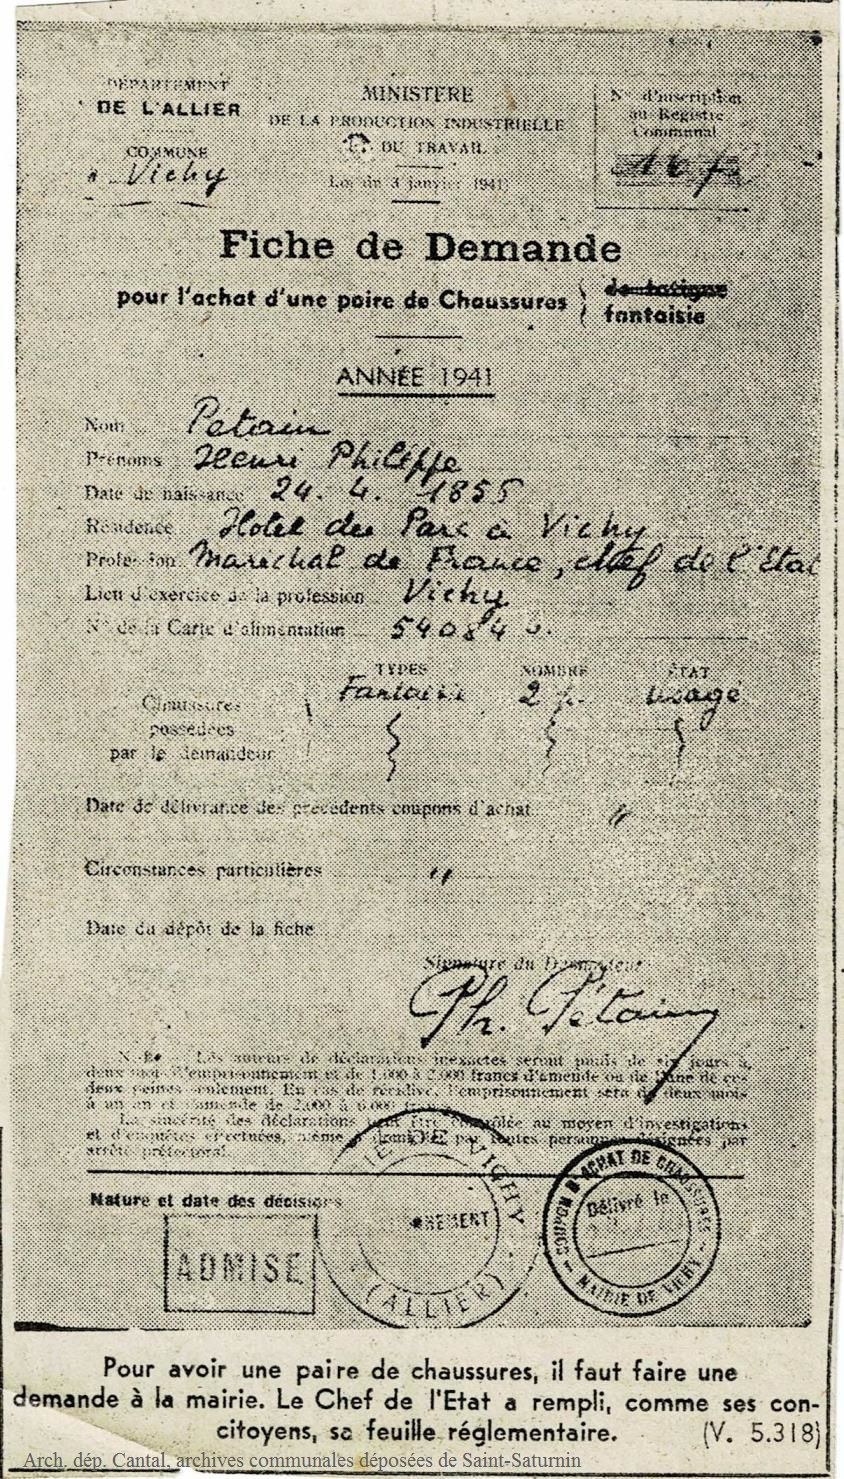 DÉPARTEMENT
DE L'ALLIER
COMMUNE
Vichy
MINISTÈRE
DE LA PRODUCTION INDUSTRIELLE
ET DU TRAVAIL
Loi du 3 janvier 1941)
N° d'inscription
au Registre
Communal
Fiche de Demande
pour l'achat d'une paire de Chaussures
de fatigue
fantaisie
ANNÉE 1941
Nom Pétain
Prénoms Henri Philippe
Date de naissance 24. 4. 1856
Résidence Hotel du Parc à Vichy
Profession Maréchal de France, chef de l'Etat
Lieu d'exercice de la profession Vichy
N° de la Carte d'alimentation 54084
TYPES NOMBRE ÉTAT
Chaussures
possédées
par le demandeur
Fantaisie 2 p. usagé
Date de délivrance des précédents coupons d'achat "
Circonstances particulières "
Date du dépôt de la fiche
Signature du Demandeur
Ph. Pétain
N. B. — Les auteurs de déclarations inexactes seront punis de six jours à
deux mois d'emprisonnement et de 1.000 à 2.000 francs d'amende ou de l'une de ces
deux peines seulement. En cas de récidive, l'emprisonnement sera de deux mois
à un an et l'amende de 2.000 à 6.000 francs
La sincérité des déclarations peut être contrôlée au moyen d'investigations
et d'enquêtes effectuées, même à domicile par toutes personnes désignées par
arrêté préfectoral.
Nature et date des décisions
ADMISE
VILLE DE VICHY
(ALLIER)
COUPON D'ACHAT DE CHAUSSURES
Délivré le
MAIRIE DE VICHY
Pour avoir une paire de chaussures, il faut faire une
demande à la mairie. Le Chef de l'Etat a rempli, comme ses con-
citoyens, sa feuille réglementaire. (V. 5.318)
Arch. dép. Cantal, archives communales déposées de Saint-Saturnin